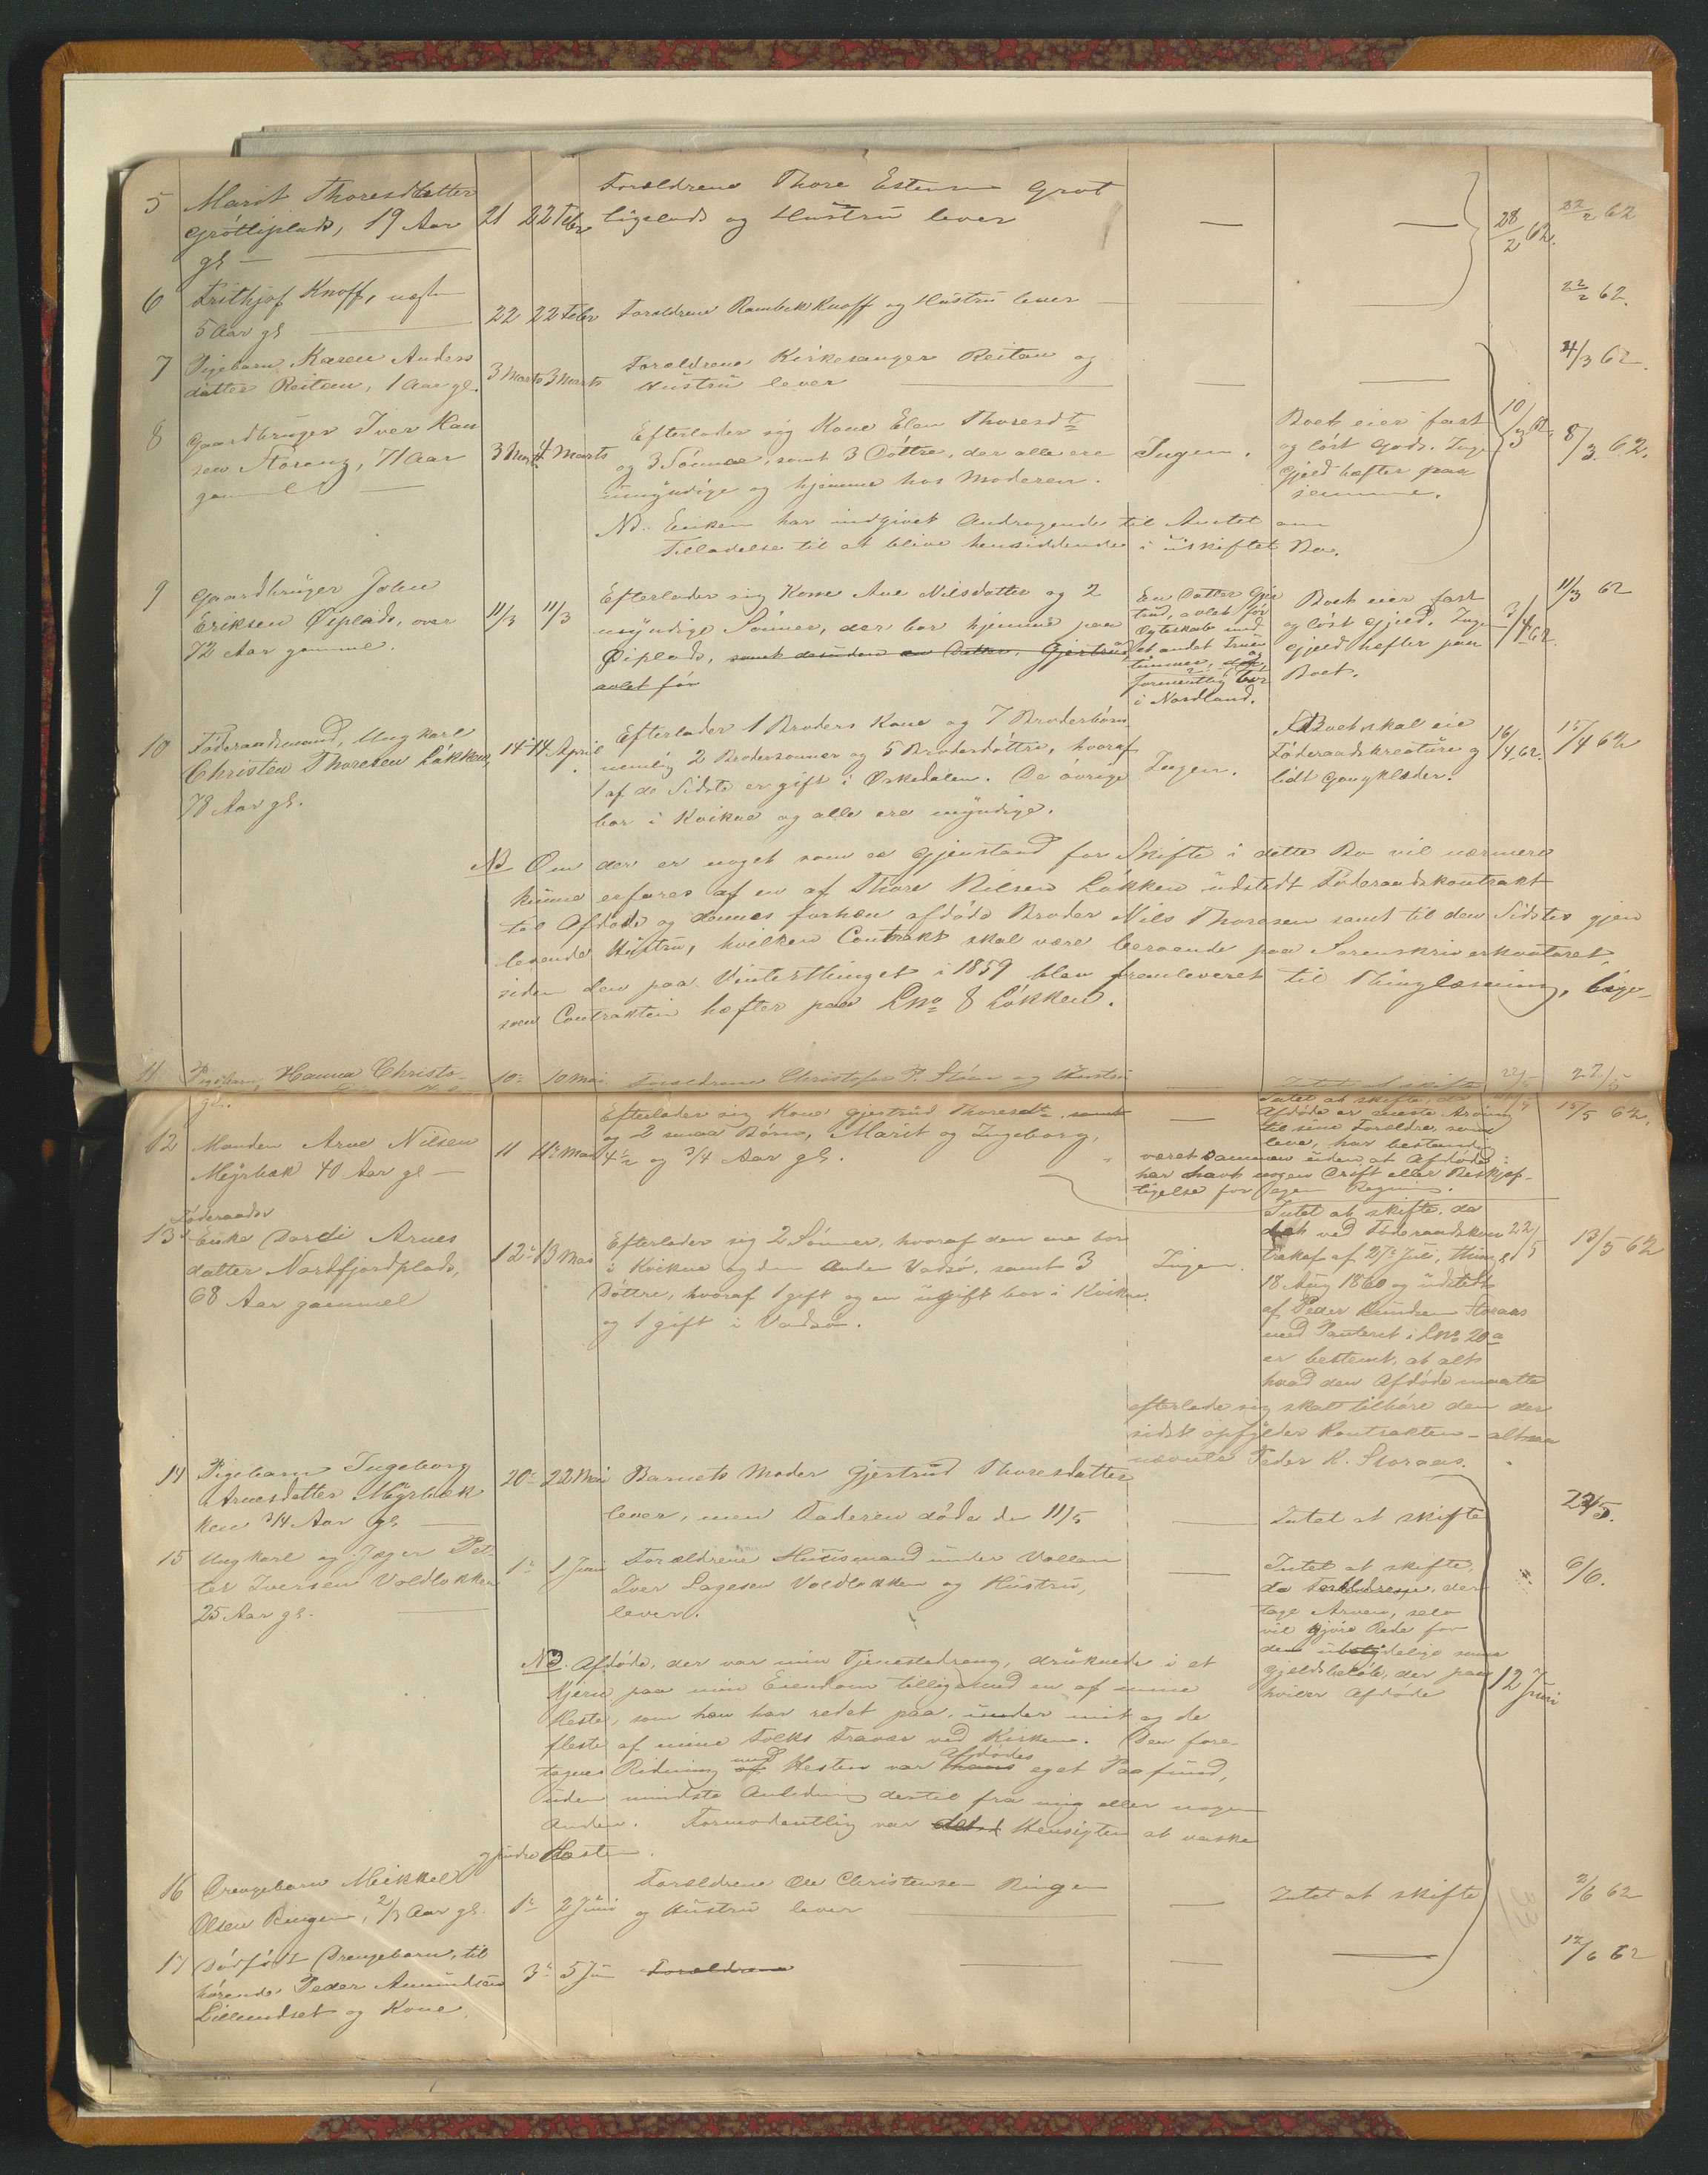 5 Marit Thoresdatter
Grötliplads, 19 Aar
gl
21 22 Febr
Forældrene Thore Estensen Gröt
ligplads og Hustrü lever
28/2 62.
22/2 62
6 Frithjof Knoff, næsten
5 Aar gl
22 22 Febr Forældrene Rambek Knoff og Hüstrü lever
22/2 62.
7 Pigebarn Karen Anders
datter Reitan, 1 Aar gl.
3 Marts 3 Marts
Forældrene Kirkesanger Reitan og
Hustrü lever
4/3 62.
8 Gaardbrüger Iver Han
sen Störeng, 71 Aar
gammel
3 Marts 4 Marts
Efterlader sig Kone Elen Thoresdt
og 3 Sönner, samt 3 Döttre, der alle ere
ümÿndige og hjemme hos Moderen.
Ingen.
Boet eier fast
og löst Gods. Ingen
Gjeld hefter paa
samme.
10/3 62.
8/3 62.
NB. Enken har indgivet Andragende til Amtet om
Tilladelse til at blive hensiddende i üskiftet Bo.
9 Gaardbrüger John
Eriksen Öiplads, over
72 Aar gammel.
11/3 11/3
Efterlader sig Kone Ane Nilsdatter og 2
mÿndige Sönner, der bor hjemme paa
Öiplads, samt desüden en Datter, Gjertrud,
avlet för
En Datter Gjer
trüd, avlet för
Egteskab med
et andet Früen
timmer, og
formentlig bor
i Nordland.
Boet eier fast
og löst Gjeld. Ingen
Gjeld hefter paa
Boet.
3/4 62.
11/3 62
10 Föderaadsmand, Ungkarl
Christen Thoresen Lökken,
78 Aar gl.
14 14 April
Efterlader 1 Broders Kone og 7 Broderbörn
nemlig 2 Brodersönner og 5 Broderdöttre, hvoraf
1 af de Sidste er gift i Orkedalen. De övrige
bor i Kvikne og alle ere mÿndige.
Ingen.
Boet skal eie
Föderaadskreatüre og
lidt Gangklæder.
16/4 62.
15/4 62
NB Om der er noget som er Gjenstand for Skifte i dette Bo vil nærmere
künne erfares af en af Thore Nilsen Lökken üdstedt Föderaadskontrakt
til Afdöde og dennes forhen afdöde Broder Nils Thoresen samt til den Sidstes gjen
levende Hüstrü, hvilken Contrakt skal være beroende paa Sorenskriverkontoret
siden den paa Vinterthinget i 1859 blev fremleveret til Thinglæsning, lige-
som Contrakten hefter paa Lno 8 Lökken.
11 Pigebarn Hanna Christo-
10 10 Mai Forældrene Christofer P. Stöen og Hustrü
Intet at skifte
22/5
gl.
12 Manden Arne Nilsen
Mÿrbæk 40 Aar gl
11 11 Mai
Efterlader sig Kone Gjertrüd Thoresdt samt
og 2 smaa Börn, Marit og Ingeborg,
4½ og 3/4 Aar gl.
Intet at skifte, da
Afdöde er eneste Arving
til sine Forældre, som
leve, har bestandig
været sammen üden at Afdöde
har havt nogen Drift eller Beskjæf-
tigelse for egen Regning.
15/5 62.
13 Föderaads
Enke Dordi Arnes
datter Nordfjordplads,
68 Aar gammel
12 13 Mai
Efterlader sig 2 Sönner, hvoraf den ene bor
i Kvikne og den Anden Vadsö, samt 3
Döttre, hvoraf 1 gift og en ügift bor i Kvikne
og 1 gift i Vadsö.
Ingen.
Intet at skifte, da
det ved Föderaadskon
trakt af 21 Juli, thingl
18 Aug 1860 og üdstedt
af Peder Knüdsen Storaas
med Panteret i Lno 20a
er bestemt, at alt
hvad den Afdöde maatte
efterlade sig skal tilhöre den der
sidst opfÿlder Kontrakten - altsaa
nævnte Peder K. Storaas.
22/5
13/5 62
14 Pigebarn Ingeborg
Arnesdatter Mÿrbæk
ken 3/4 Aar gl.
20 22 Mai
Barnets Moder Gjertrüd Thoresdatter
lever, men Faderen döde den 11/5
Intet at skifte
15 Ungkarl og Jæger Pet-
ter Iversen Voldlökken
25 Aar gl.
1 1 Juni
Forældrene Hüusmand ünder Vollan
Iver Dagesen Voldlökken og Hüstrü,
lever.
Intet at skifte,
da Forældrene, der
tage Arven, selv
vil gjöre Rede for
den übetÿdelige
Gjeldsbelöb, der paa
hviler Afdöde
6/6.
12 Juni
NB. Afdöde, der var min Tjenestedreng, drüknede i et
Kjern paa min Eiendom tilligemed en af mine
Heste, som han har redet paa, ünder mit og de
fleste af mine Folks Fravær ved Kirken. Den fore-
tagne Ridning med Hesten var Afdödes eget Paafünd,
üden mindste Anledning dertil fra mig eller nogen
Anden. Formodentlig var det Hensigten at vaske
Hesten.
16 Drengebarn Mikkel
Olsen Ringen, 2/3 Aar gl.
1 2 Jüni
Forældrene Ole Christensen Ringen
og Hüstrü lever
Intet at skifte
2/6 62
17 Dödfödt Drengebarn, til
hörende Peder Amündsen
Lillendset og Kone.
3 5 Jün Forældrene
12/6 62